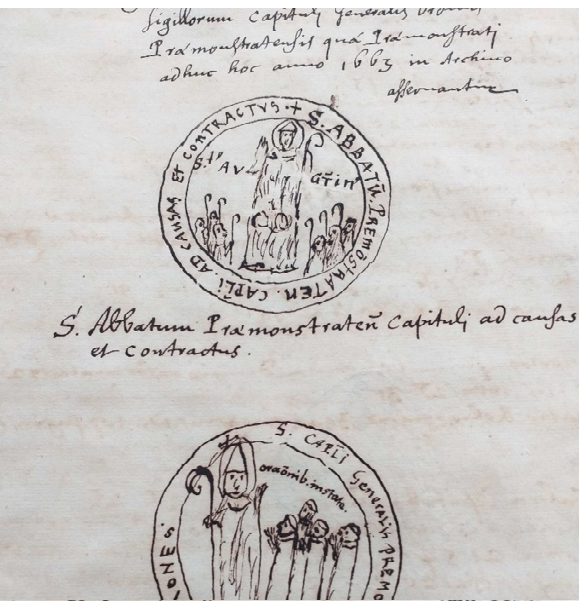 Sigillorum Capituli Generalis Ordinis
Præmonstratensis quæ Præmonstrati
adhuc hoc anno 1663 in Archivo
asservantur
+ S. ABBATŪ. PREMŌSTRATEN. CAPLĪ. AD CAUSAS ET CONTRACTVS.
S.tus AV GŪTIN
S. Abbatum Præmonstrateñ Capituli ad causas
et contractus.
S. CAPLĪ Generalis PREMO
oraōnib. instate.
IONES.